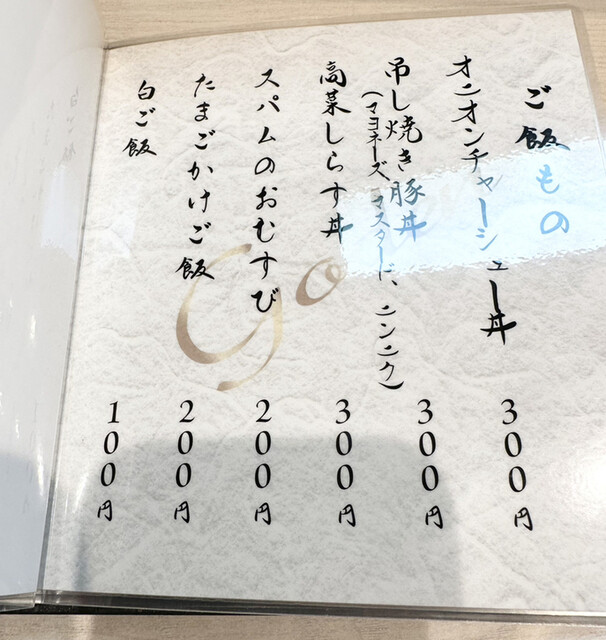 ご飯もの
オニオンチャーシュー丼 300円
吊し焼き豚丼 300円
(マヨネーズ、マスタード、ニンニク)
高菜しらす丼 300円
スパムのおむすび 200円
たまごかけご飯 200円
白ご飯 100円
Go